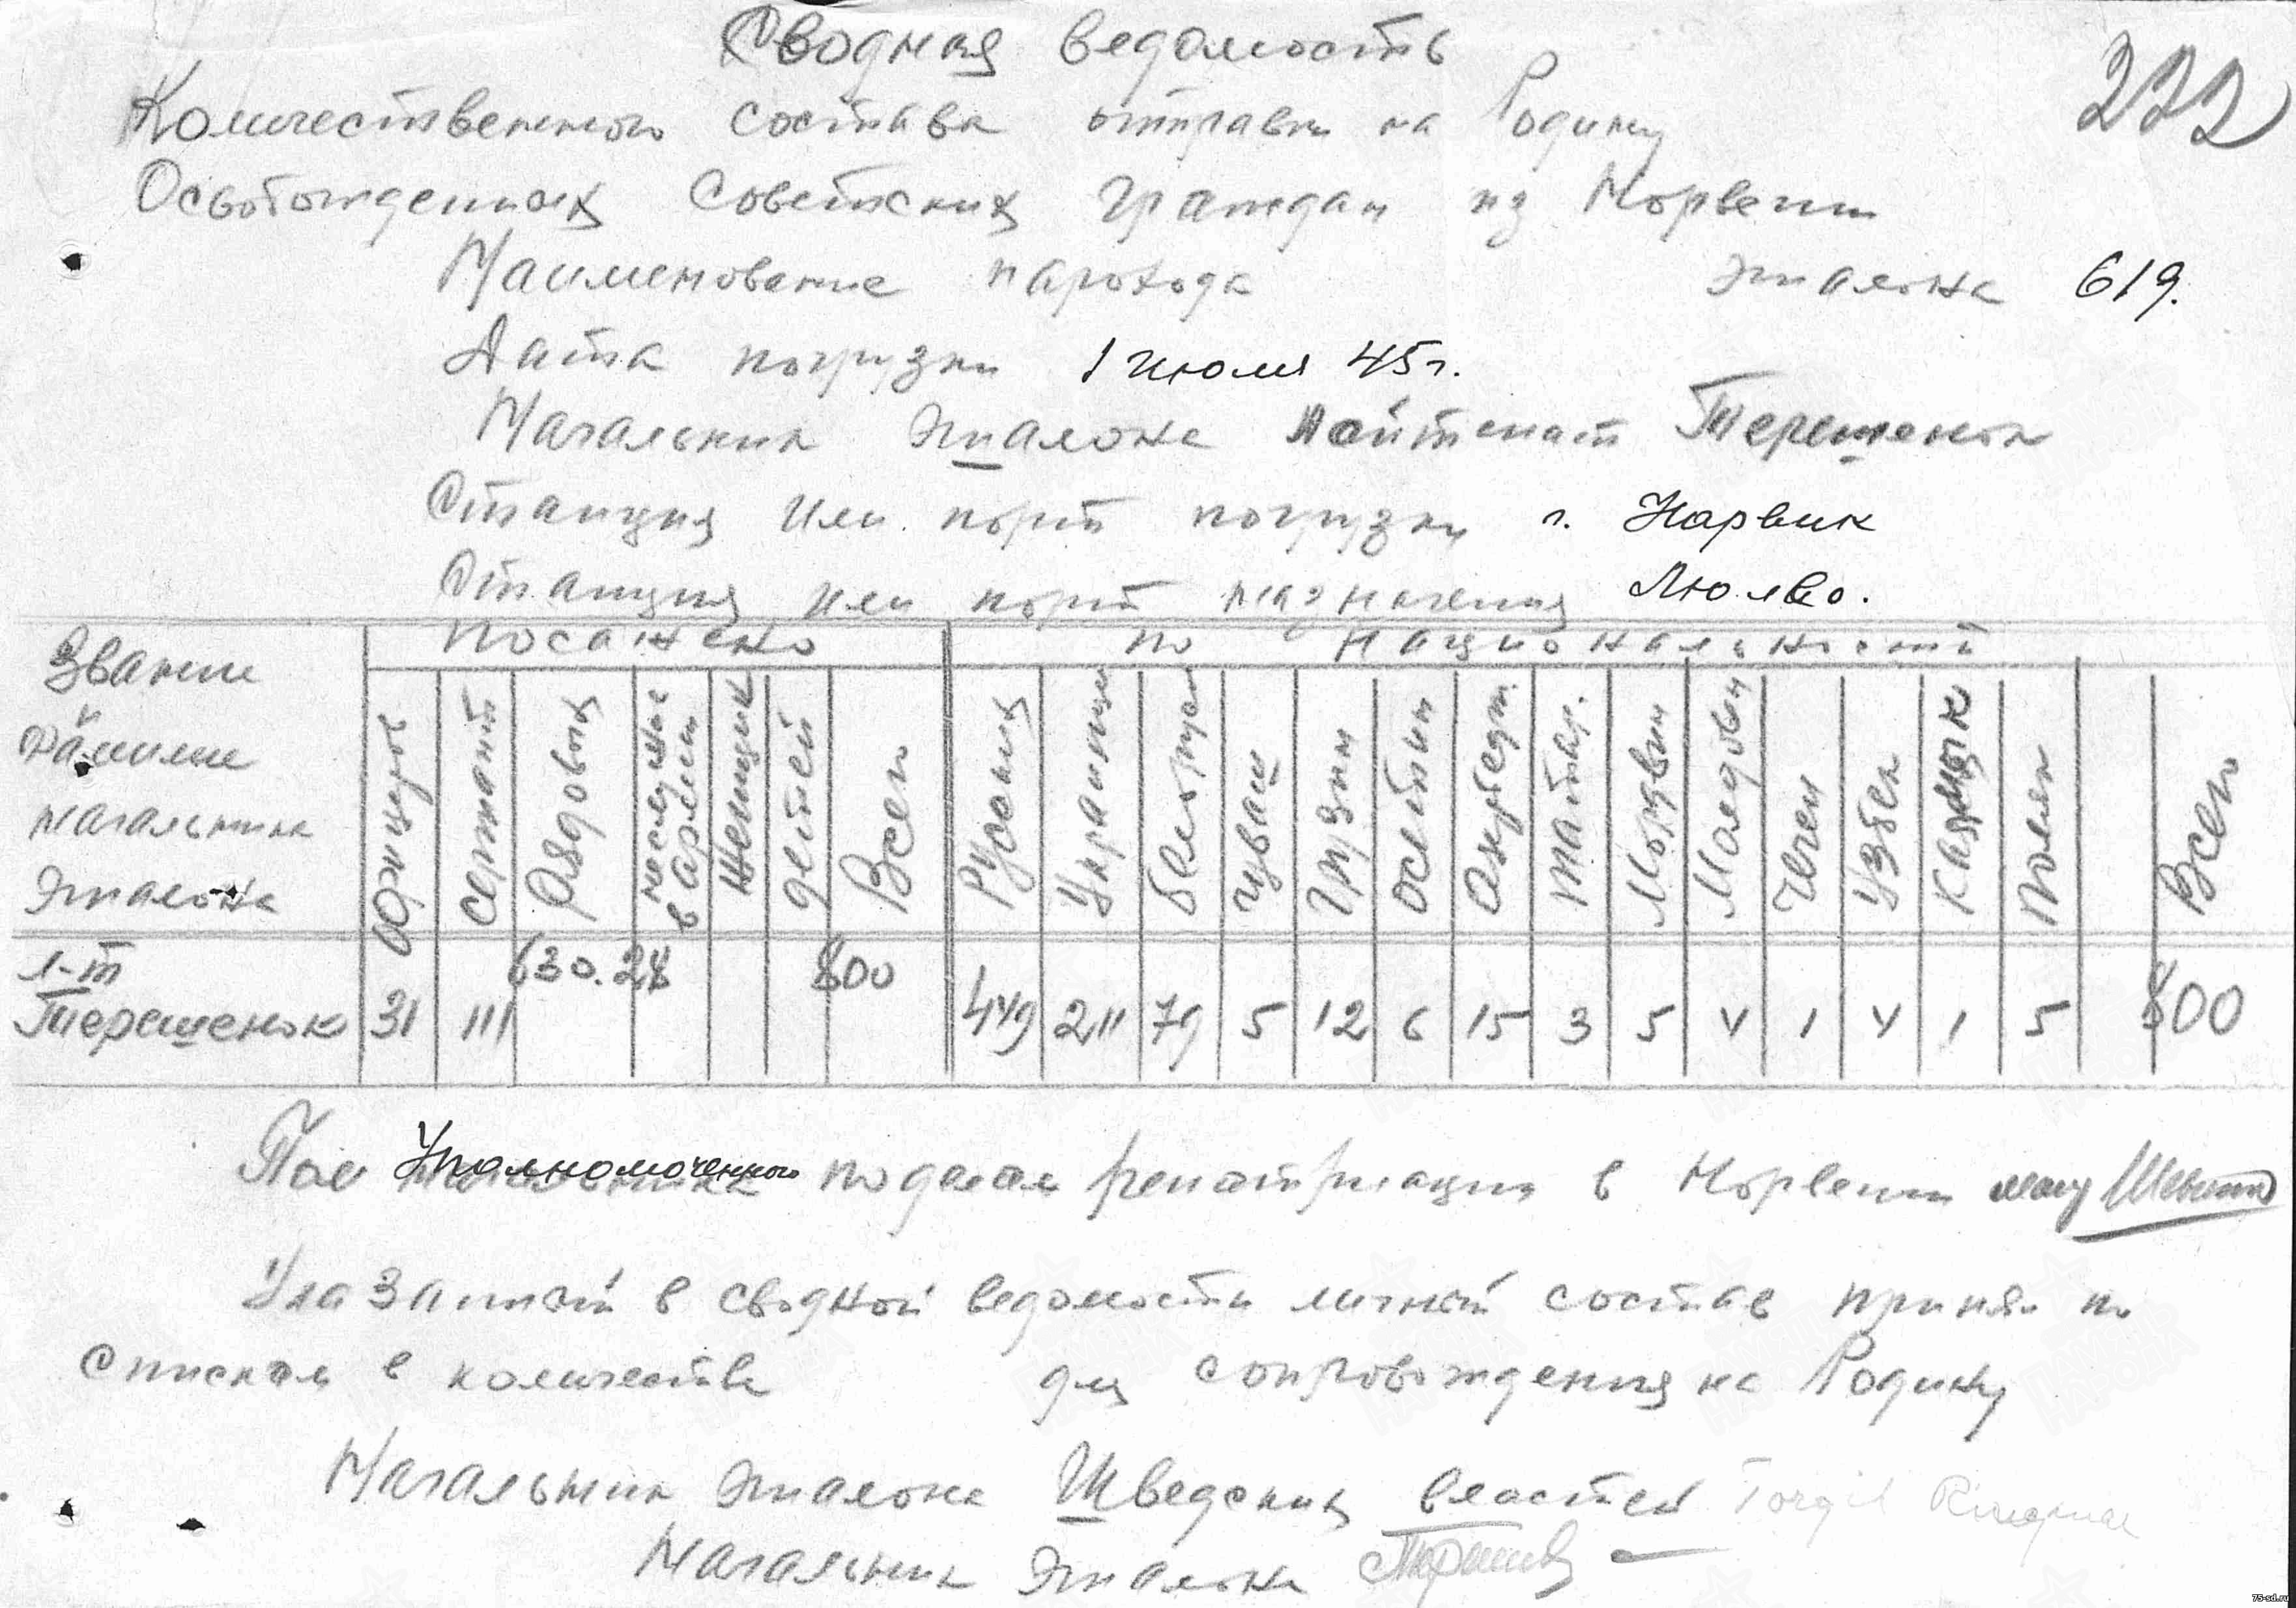 Сводная ведомость
222
Количественного состава отправки на Родину
Освобожденных Советских граждан из Норвегии
Наименование парохода эшалона 619.
Дата погрузки 1 июля 45 г.
Начальник эшалона Лейтенант Терешенок
Станция или порт погрузки г. Нарвик
Станция или порт назначения Люлео.
Звание фамилие начальника эшалона
Посажено
по национальности
Офицеров
сержант
Рядовых
неслуживш в армии
Женщин
детей
Всего
Русских
Украинц
белорус
чуваш
Грузин
Осетин
Азербедж.
татар.
Мордвин
Молдован
Чечен
Узбек
Поляк
Всего
л-т Терешенок 31 111 630. 28 800 449 211 79 5 12 6 15 3 5 4 1 4 1 5 800
Пом Уполномоченного по делам репатриации в Норвегии
Указанный в сводной ведомости личный состав принял по
спискам в количестве для сопровождения на Родину
Начальник эшалона Шведских властей Torgil
Начальник эшалона
75-sd.ru